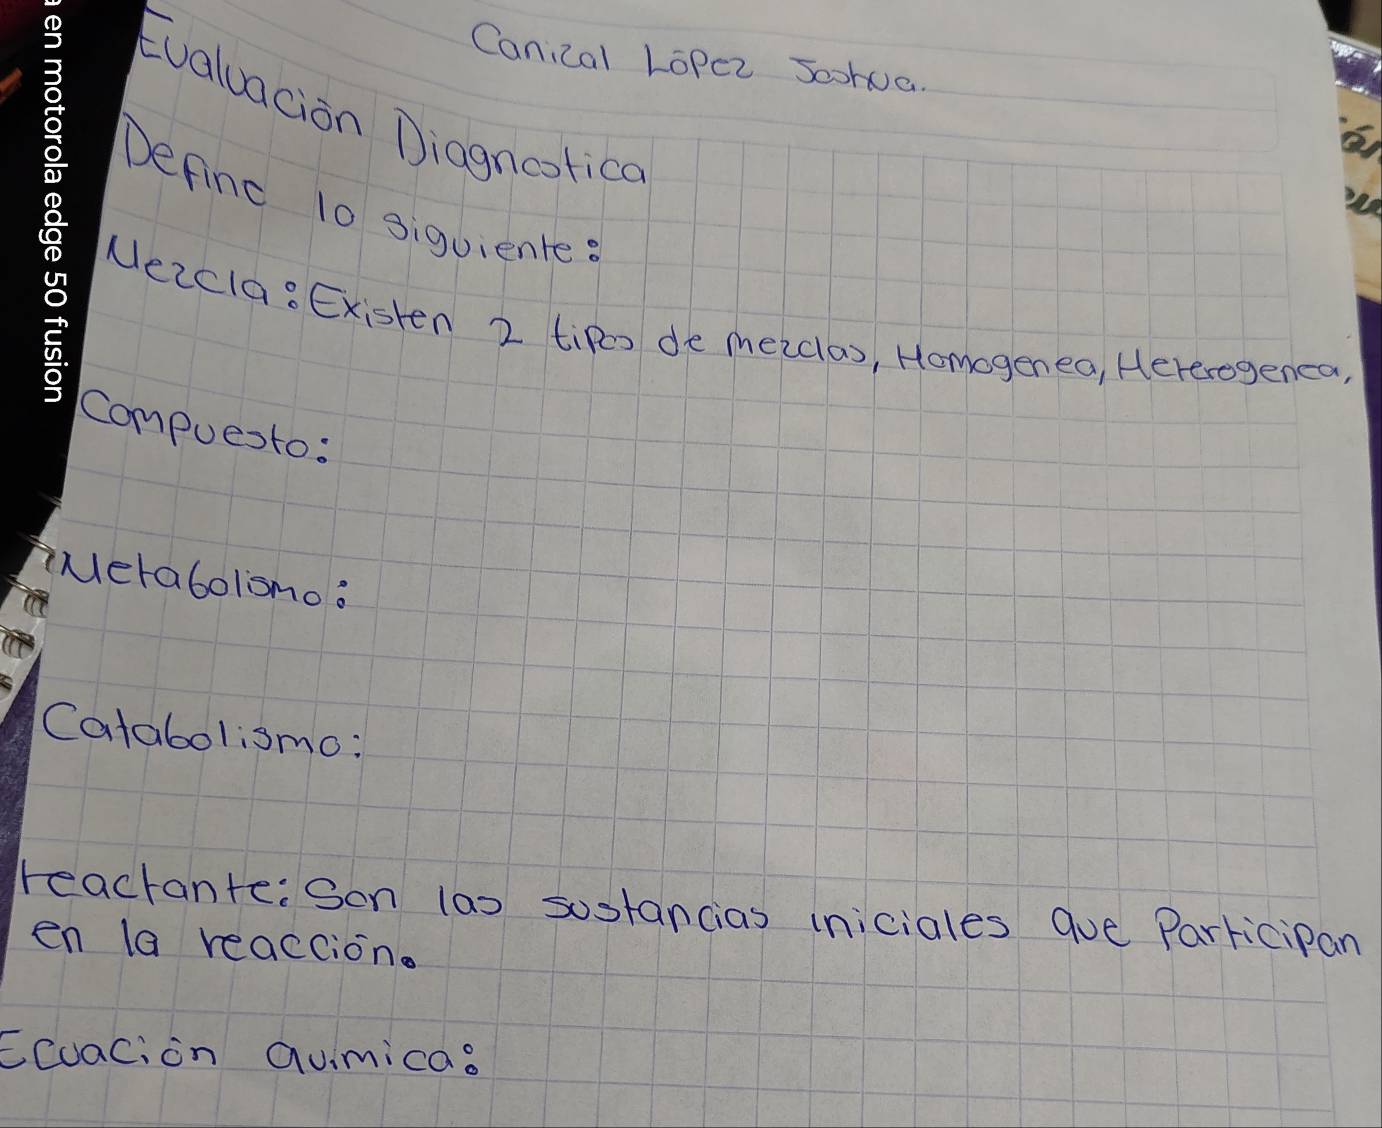 en motorola edge 50 fusion
Canizal López Joshua.
Evaluación Diagnostica
Define lo siguiente:
Mezcla: Existen 2 tipos de mezclas, Homogenea, Heterogenea,
Compuesto:
Metabolismo:
Catabolismo:
reactante: Son las sustancias iniciales que Participan
en la reacción.
Ecuación química: